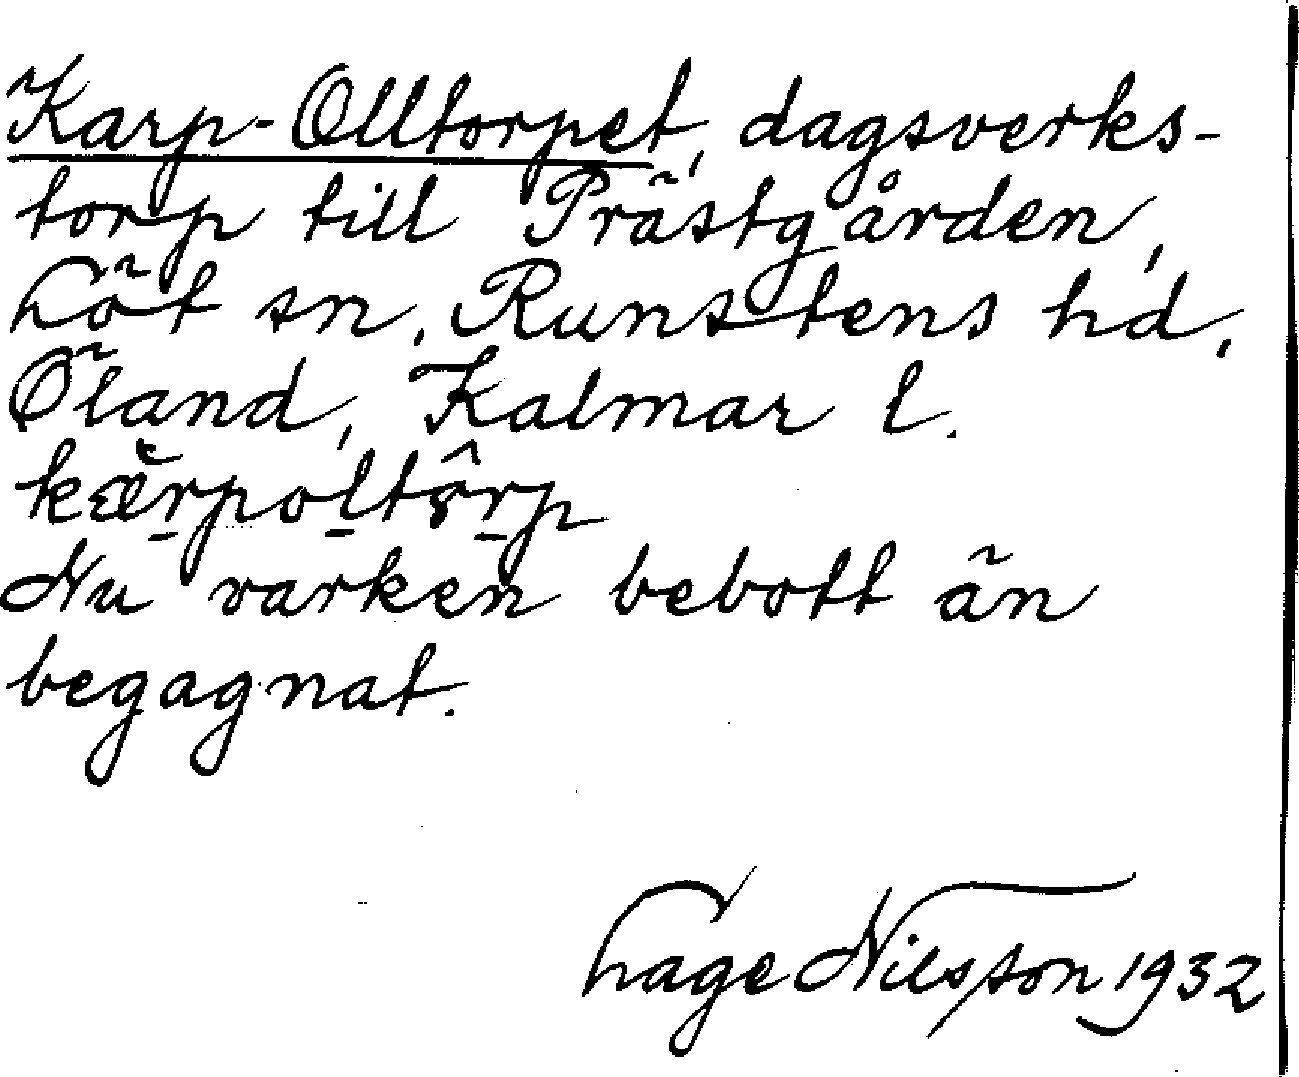 Karp-Olltorpet, dagsverks-
torp till Prästgården,
Löt sn, Runstens hd,
Öland, Kalmar l.
kærpoltôrp
Nu varken bebott än
begagnat.
Lage Nilsson 1932